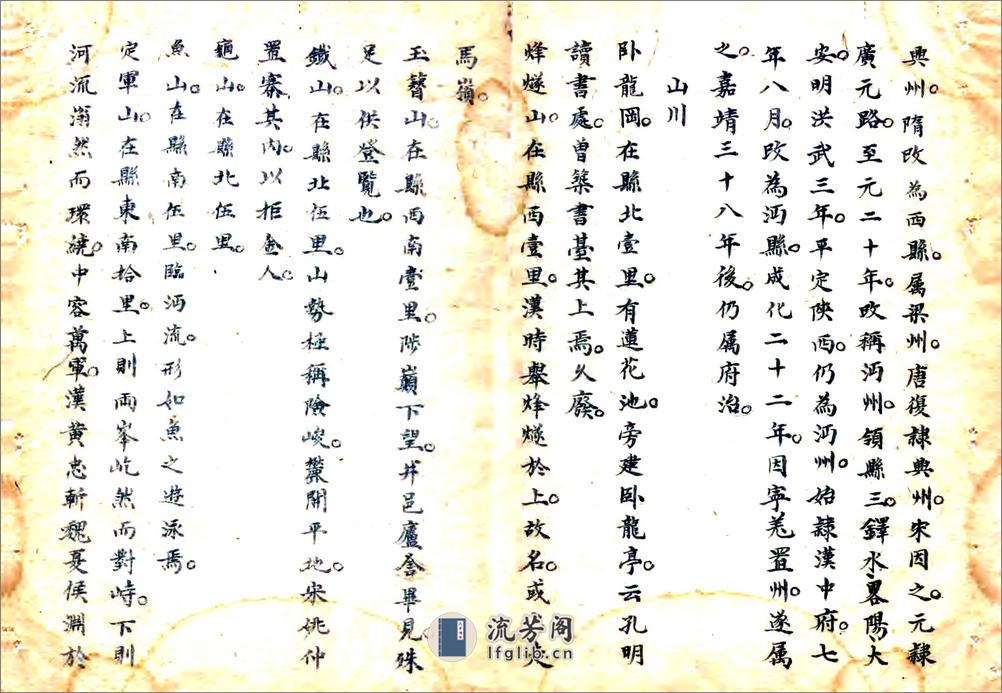 興州。隋改為西縣。属梁州。唐復隸興州。宋因之。元隸
廣元路。至元二十年。改稱沔州。領縣三。鐸水、畧陽、大
安。明洪武三年。平定陝西。仍為沔州。始隸漢中府。七
年八月。改為沔縣。成化二十二年。因寧羌置州。遂属
之。嘉靖三十八年後。仍属府治。
山川
卧龍岡。在縣北壹里。有蓮花池。旁建卧龍亭。云孔明
讀書處。曾築書臺其上焉。久廢。
烽燧山。在縣西壹里。漢時舉烽燧於上。故名。或
馬嶺。
玉簪山。在縣西南壹里。陟巔下望。井邑廬舍畢見。殊
足以供登覽也。
鐵山。在縣北伍里。山勢極稱險峻。麓開平地。宋姚仲
置寨其內。以拒金人。
龜山。在縣北伍里。
魚山。在縣南伍里。臨沔流。形如魚之遊泳焉。
定軍山。在縣東南拾里。上則兩峯屹然而對峙。下則
河流滃然而環繞。中容萬軍。漢黃忠斬魏夏侯淵於
流芳阁
lfglib.cn